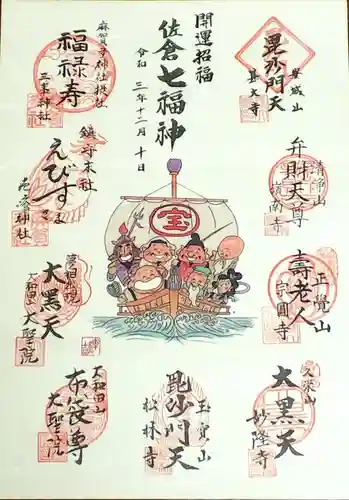 開運招福
佐倉七福神
令和三年十二月十日
毘沙門天
甚大寺
弁財天尊
清浄山
嶺南寺
壽老人
正覺山
宗圓寺
大黒天
久栄山
妙隆寺
毘沙門天
玉寶山
松林寺
布袋尊
大和田山
大聖院
大黒天
大聖院
えびすさま
鎮守末社
神社
福禄寿
麻賀多神社授社
三峯神社
宝